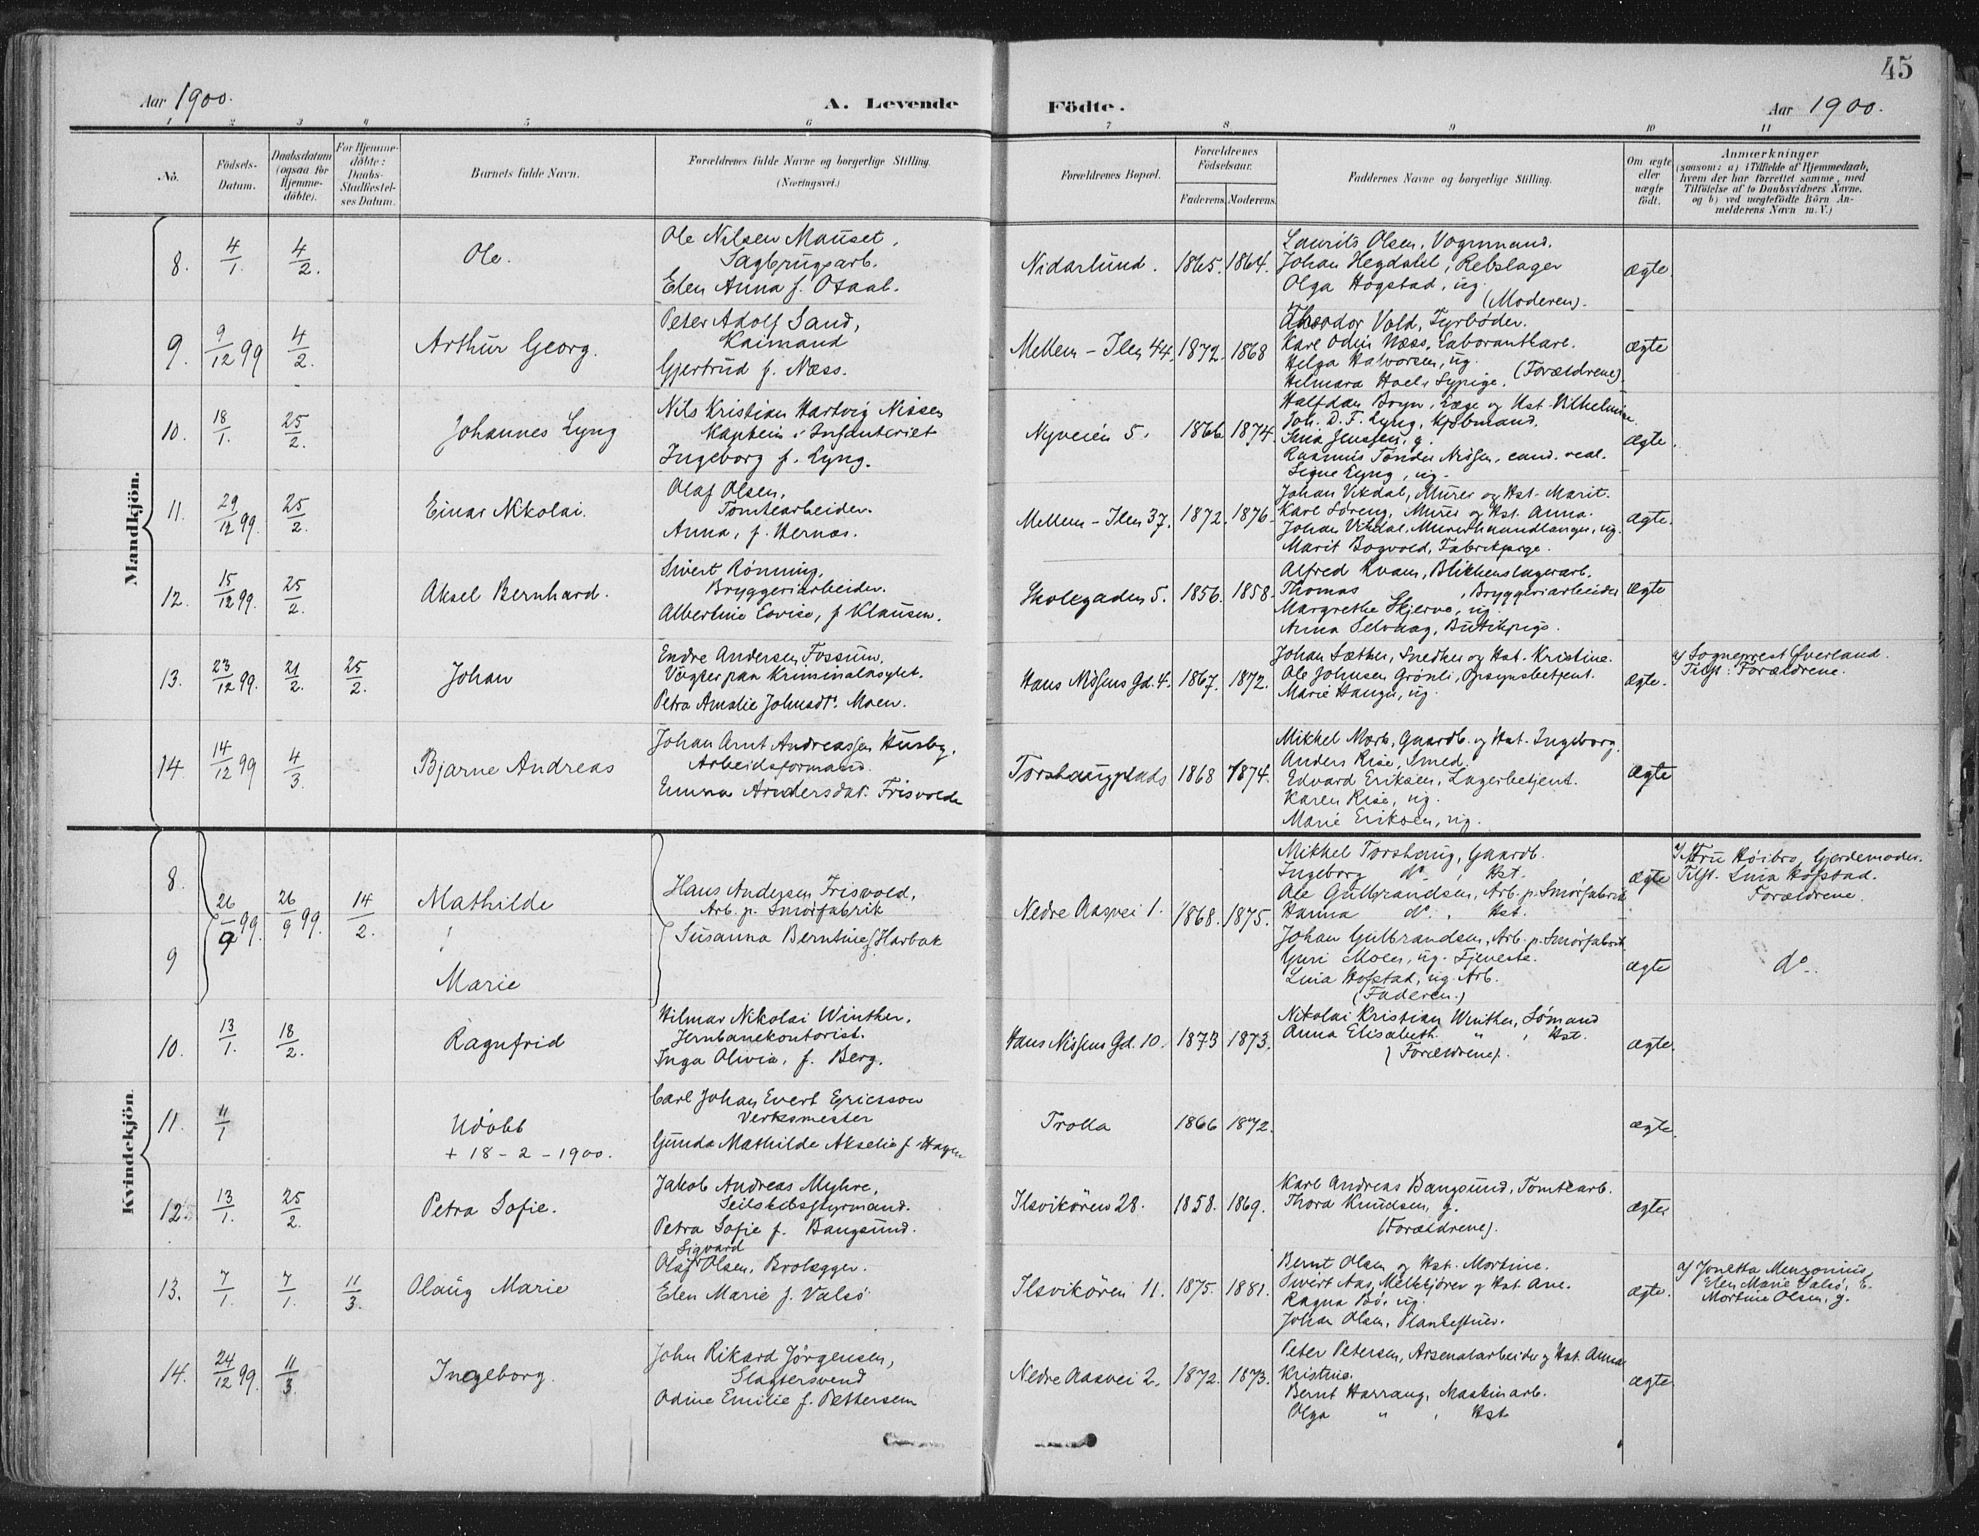 45
Aar 1900.
A. Levende Födte.
Aar 1900.
1 2 3 4 5 6 7 8 9 10 11
No.
Födsels-Datum.
Daabsdatum (ogsaa for Hjemmedöbte).
For Hjemmedöbte: Daabs-Stadfæstelses Datum.
Barnets fulde Navn.
Forældrenes fulde Navne og borgerlige Stilling. (Næringsvei.)
Forældrenes Bopæl.
Forældrenes Födselsaar.
Faderens. Moderens.
Faddernes Navne og borgerlige Stilling.
Om ægte eller uægte födt.
Anmærkninger
(saasom: a) i Tilfælde af Hjemmedaab, hvem der har forrettet samme, med Tilföielse af to Daabsvidners Navne, og b) ved uægtefödte Börn Anmelderens Navn m. V.)
Mandkjön.
8. 4/1. 4/2. Ole.
Ole Nilsen Mauset,
Sagbrugsarb.
Elen Anna f. Osaal.
Nidarlund. 1865. 1864.
Laurits Olsen, Vognmand.
Johan Hegdahl, Rebslager
Olga Hogstad, ug.
(Moderen).
ægte
9. 9/12 99 4/2. Arthur Georg.
Peter Adolf Sand,
Kaimand
Gjertrud f. Næss.
Mellem-Ilen 44. 1872. 1868
Theodor Vold, Fyrböder.
Karl Odin Næss, Laborantkarl.
Helga Halvorsen, ug.
Hilmara Hoel, Sypige. (Forældrene).
ægte
10. 18/1. 25/2. Johannes Lyng
Nils Kristian Hartvig Nissen
Kaptein i Infanteriet
Ingeborg f. Lyng.
Nyveien 5. 1866. 1874.
Halfdan Bryn, Læge og Hst. Vilhelmine
Joh. D. F. Lyng, Kjöbmand.
Jenssen, g.
Rasmus Tönder Nissen, cand. real.
Signe Lyng, ug.
ægte.
11. 29/12 99. 25/2. Einar Nikolai.
Olaf Olsen,
Tomtearbeider.
Anna, f. Hernæs.
Mellem-Ilen 37. 1872. 1876.
Johan Vikdal, Murer og Hst. Marit.
Karl Loreng, Murer og Hst. Anna.
Johan Vikdal, Murerhaandlanger, ug.
Marit Bogvold, Fabrikpige.
ægte.
12. 15/12 99. 25/2. Aksel Bernhard.
Sivert Rönning,
Bryggeriarbeider.
Albertine Lovise, f. Klausen.
Skolegaden 5. 1856. 1858.
Alfred Kvam, Blikkenslagerarb.
Thomas , Bryggeriarbeider
Margrethe Skjerve, ug.
Anna Selvaag, Butikpige.
ægte
13. 23/12 99. 21/2. 25/2. Johan
Endre Andersen Fossum,
Vögter paa Kriminalasylet.
Petra Amalie Johnsdtr. Moen.
Hans Nissens Gd. 4. 1867. 1872.
Johan Sæther, Snedker og Hst. Kristine.
Ole Johnsen Grönli, Opsynsbetjent.
Marie Haugen, ug.
ægte.
a/ Sogneprest Överland.
Tilst. Forældrene.
14. 14/12 99 4/3. Bjarne Andreas
Johan Arnt Andreassen Husby.
Arbeidsformand.
Emma Andersdat. Frisvolde
Torshaugplads 1868 1874.
Mikkel Mork, Gaardb. og Hst. Ingeborg.
Anders Rise, Smed.
Edvard Eriksen, Lagerbetjent.
Karen Rise, ug.
Marie Eriksen, ug.
ægte
Kvindekjön.
8 26/9 99. 26/9 99. 14/2. Mathilde
Hans Andersen Frisvold,
Arb. p. Smörfabrik
Susanna Berntine f. Harbak
Nedre Aasvei 1. 1868. 1875.
Mikkel Torshaug, Gaardb.
Ingeborg do , Hst.
Ole Gulbrandsen, Arb. p. Smörfabrik
Hanna do , Hst.
ægte
a/ Fru Höibro, Gjordemoder.
Tilst. Lina Hofstad.
Forældrene.
9 Marie
Johan Gulbrandsen, Arb. p. Smörfabrik
Guri Moen, ug. Tjeneste.
Lina Hofstad, ug. Arb.
(Faderen.)
ægte
do.
10. 13/1. 18/2. Ragnfrid
Hilmar Nikolai Winther,
Jernbanekontorist.
Inga Olivia, f. Berg.
Hans Nissens Gd. 10. 1873 1873.
Nikolai Kristian Winther, Sömand
Anna Elisabeth " , Hst.
(Forældrene).
ægte.
11. 11/1 Udöbt
+ 18-2-1900.
Carl Johan Evert Ericsson
Verksmester
Gunda Mathilde Akselia f. Hagen
Trolla 1866 1872.
ægte.
12. 13/1. 25/2. Petra Sofie.
Jakob Andreas Myhre,
Seilskibsstyrmand.
Petra Sofie f. Bangsund.
Ilsvikören 28. 1858. 1869.
Karl Andreas Bangsund, Tomtearb.
Thora Knudsen, g.
(Forældrene).
ægte
13. 7/1. 7/1. 11/3. Olaug Marie
Sigvard
Olaf Olsen, Brolægger.
Elen Marie f. Valsö
Ilsvikören 11. 1875. 1881.
Bernt Olsen og Hst. Mortine.
Sivert Aas, Melkekjörer og Hst. Ane.
Ragna Bö, ug.
Johan Olsen,
ægte.
a/ Jonetta Menzonius,
Elen Marie Valsö, E.
Mortine Olsen, g.
14. 24/12 99. 11/3. Ingeborg.
John Rikard Jörgensen,
Slagtersvend
Odine Emilie f. Pettersen
Nedre Aasvei 2. 1872. 1873.
Peter Petersen, Arsenalarbeider og Hst. Anna
Kristine.
Bernt Harraug, Maskinarb.
Olga " , Hst.
ægte